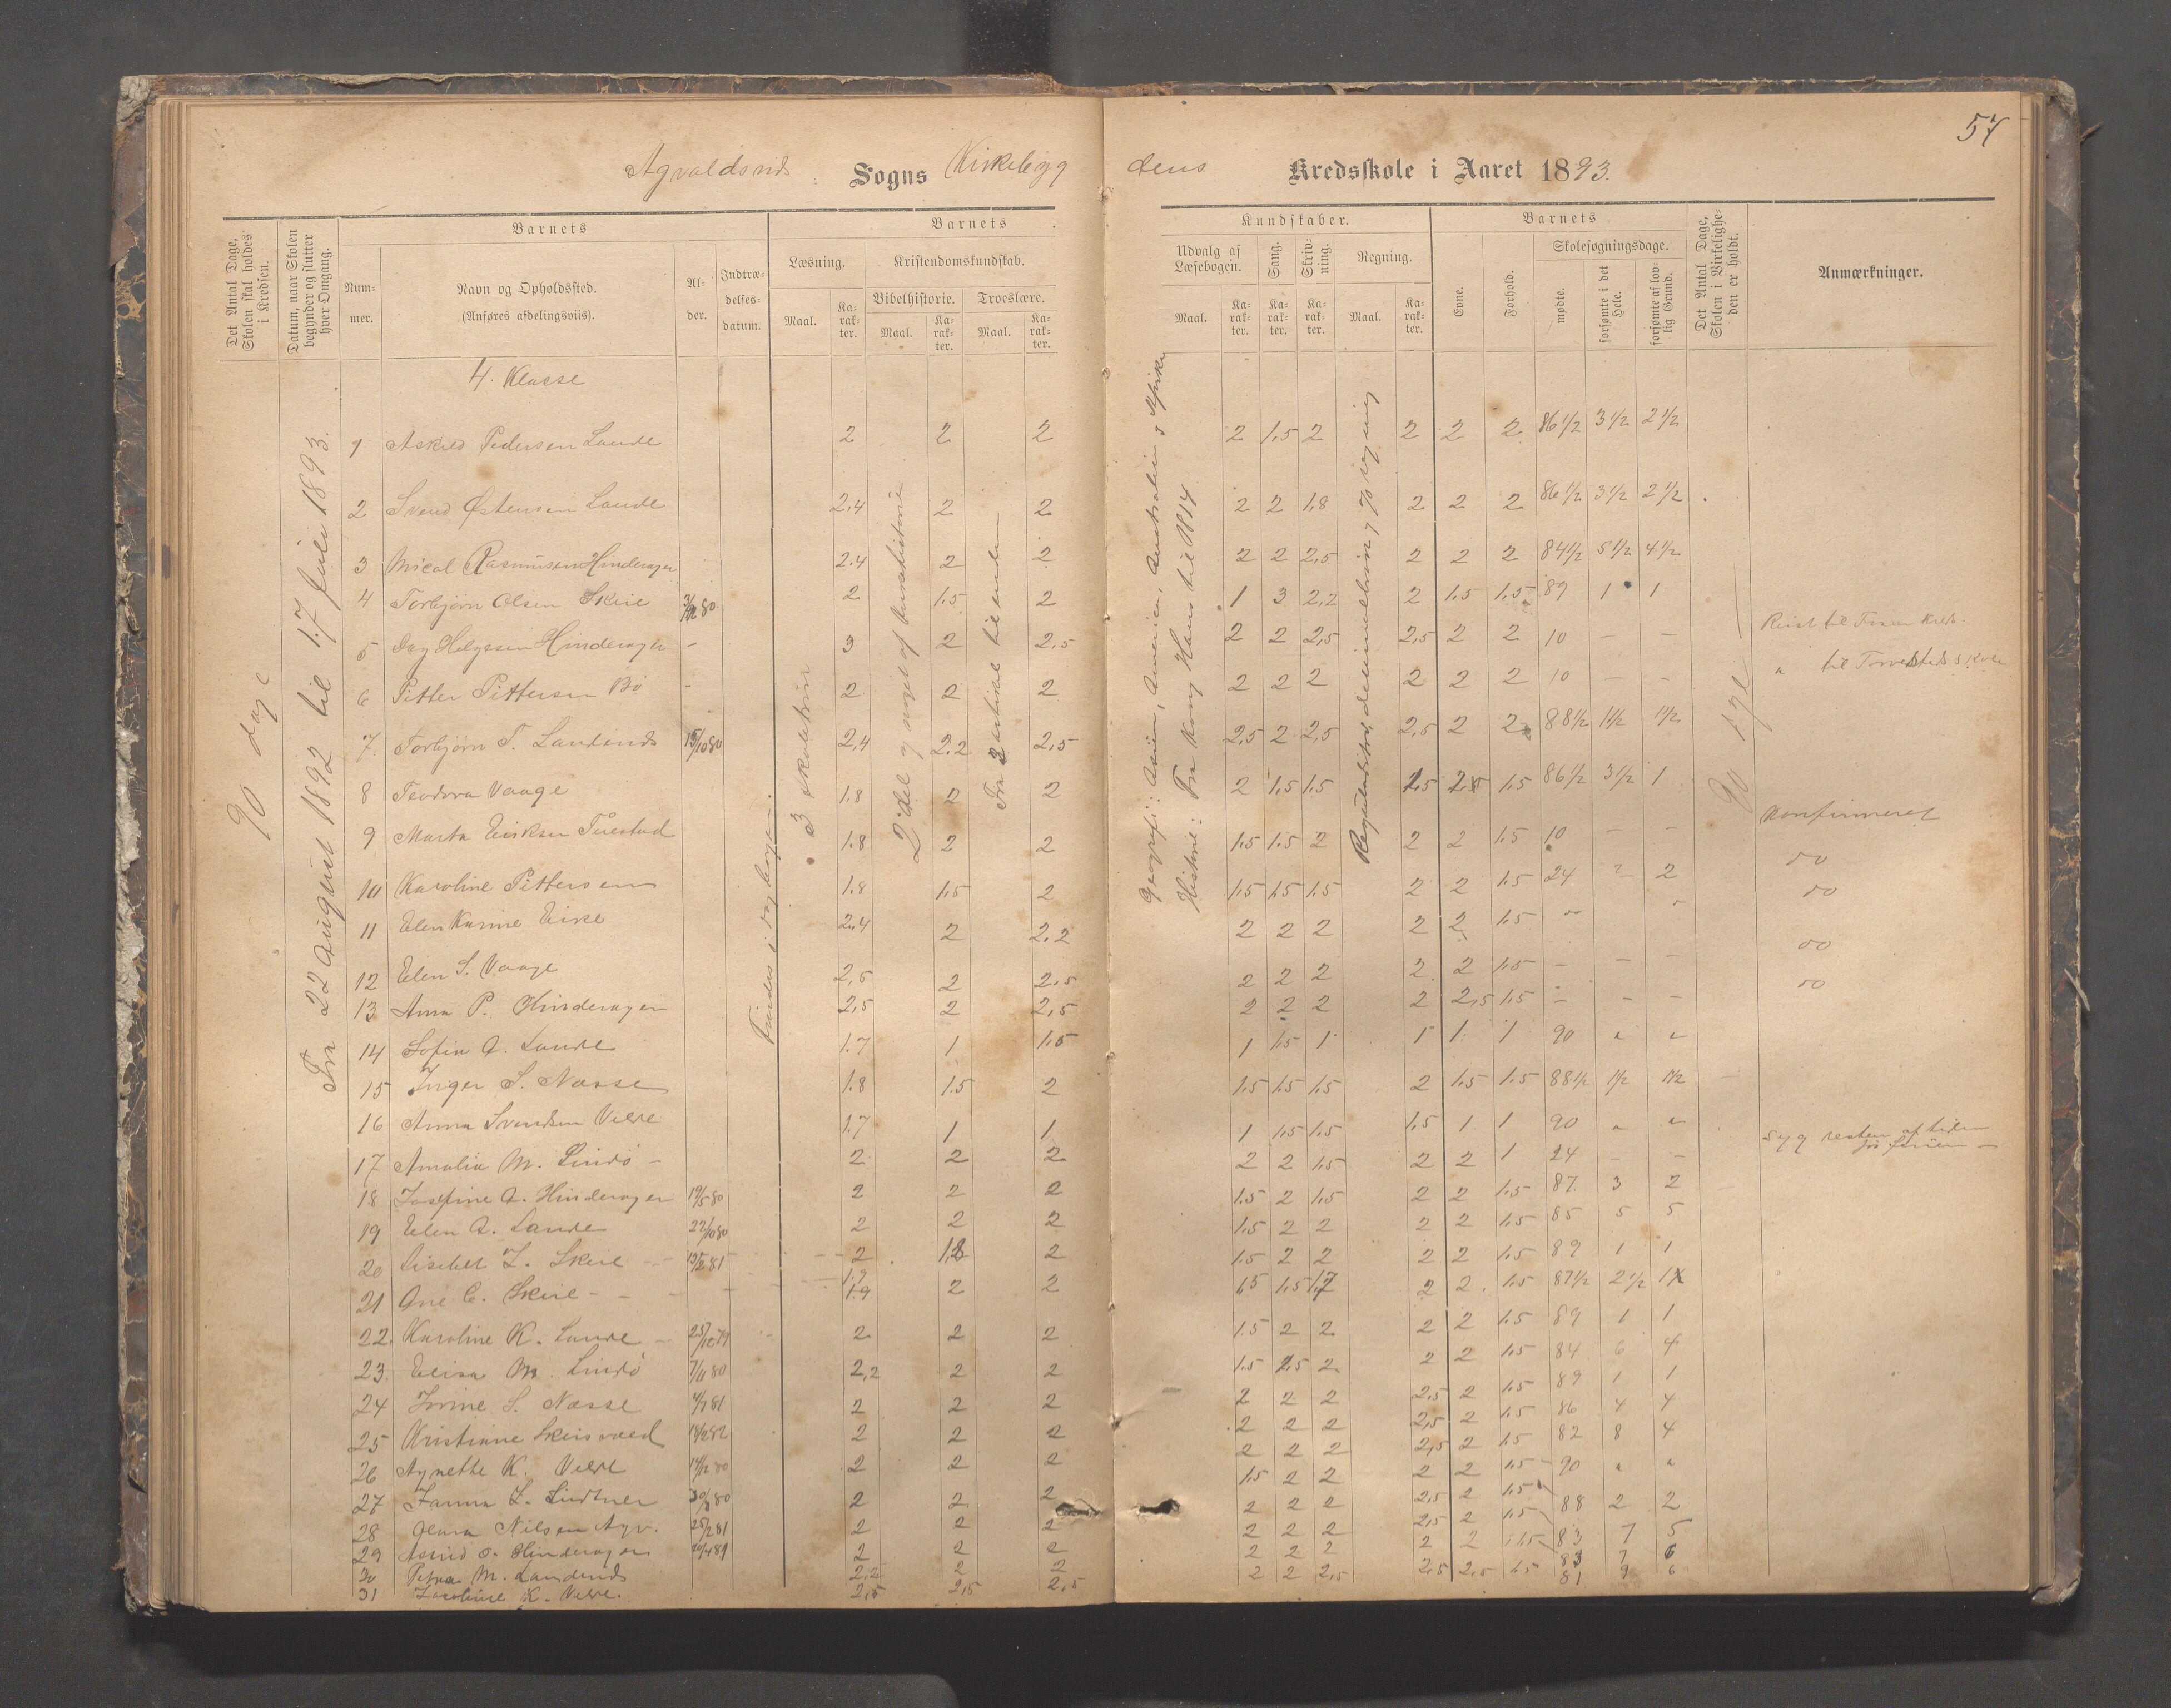 57
Agvaldsnes Sogns Kirkebyg dens Kredsskole i Aaret 1893.
Det Antal Dage, Skolen skal holdes i Kredsen.
Datum, naar Skolen begynder og slutter hver Omgang.
Barnets
Num-mer.
Navn og Opholdssted.
(Anføres afdelingsviis).
Al-der.
Indtræ-delses-datum.
Barnets
Læsning.
Maal.
Ka-rak-ter.
Kristendomskundskab.
Bibelhistorie.
Maal.
Ka-rak-ter.
Troeslære.
Maal.
Ka-rak-ter.
Kundskaber.
Udvalg af Læsebogen.
Maal.
Ka-rak-ter.
Sang.
Ka-rak-ter.
Skriv-ning.
Ka-rak-ter.
Regning.
Maal.
Ka-rak-ter.
Barnets
Evne.
Forhold.
Skolesøgningsdage.
mødte.
forsømte i det Hele.
forsømte af lov-lig Grund.
Det Antal Dage, Skolen i Virkelighe-den er holdt.
Anmærkninger.
90 dage
Fra 22 August 1892 til 17 Juli 1893.
Findes i dagbogen.
3 skoletrin
Fra 3 artikel til enden
Geografi: Asien, Amerika, Australien & Afrika
Historie: Fra Kong Hans til 1814
90 dage
4. Klasse
1 Askild Pedersen Lande 2 2 2 2 1.5 2 2 2 2 86 1/2 3 1/2 2 1/2
2 Svend Østensen Lande 2.4 2 2 2 2 1.8 2 2 2 86 1/2 3 1/2 2 1/2
3 Mical Rasmusen Hinderager 2.4 2 2 2 2 2,5 2 2 2 84 1/2 5 1/2 4 1/2
4 Torbjørn Olsen Skeie 2 1.5 2 1 3 2,2 2 1.5 1.5 89 1 1
5 Helgesen Hinderager - 3 2 2,5 2 2 2,5 2,5 2 2 10 — — Reist til
6 Pitter Pittersen Bø - 2 2 2 2 2 2 2 2 2 10 — — " til Torvestads skole
7. Torbjørn T. Landends 15/10 80 2,4 2.2 2,5 2,5 2 2,5 2,5 2 2 88 1/2 1 1/2 1 1/2
8 Teodora Vaage 1.8 2 2 2 1,5 1.5 1.5 2.5 1.5 86 1/2 3 1/2 1
9 Marta Eriksen 1.8 2 2 1.5 1.5 2 2 2 1.5 10 — — Konfirmeret
10 Karoline Pittersen 1.8 1.5 2 1.5 1.5 1.5 2 2 1.5 24 2 do
11 Elen Karine Eike 2.4 2 2.2 2 2 2 2 2 1.5 do
12 Elen S. Vaage 2,5 2 2.5 2 2 2 2 2 1.5 — — — do
13 Anna P. Hinderager 2,5 2 2,5 2 2 2 2 2,5 1.5 — — — do
14 Sofia A. Lande 1.7 1 1.5 1 1.5 1 1 1 1 90 " "
15 Inger S. Nasse 1.8 1.5 2 1.5 1.5 1.5 2 1.5 1.5 88 1/2 1 1/2 1 1/2
16 Anna Svendsen Velve 1.7 1 1 1 1.5 1.5 1.5 1 1 90 " "
17 Amalia M. Lindø - 2 2 2 2 2 1.5 2 2 1 24 — — Syg resten af tiden før ferien —
18 Josefine A. Hinderager 19/5 80 2 2 2 1.5 2 1.5 2 2 1.5 87. 3 2
19 Elen A. Lande 22/10 80 2 2 2 1.5 2 2 2 2 1.5 85 5 5
20 Lisebet L. Skeie 13/2 81 2 1.8 2 1.5 2 2 2 2 1.5 89 1 1
21 Ane C. Skeie - - 1.9 2 2 1.5 1.5 1.7 2 2 1.5 87 1/2 2 1/2 1
22. Karoline K. Lande 2 2 2 1.5 2 2 2 2 1.5 89 1 1
23. Elisa M. Lindø 7/11 80 2,2 2 2 1.5 2.5 2 2 2 1.5 84 6 4
24 Jorine S. Nasse 4/1 81 2 2 2 2 2 2 2,5 2 1.5 89 1 1
25 Kristiane Skeisvoll 18/2 82 2 2 2 2 2 2 2,5 2 1.5 86 4 4
26 Agnethe K. Velve 14/12 80 2 2 2 2 2 2 2,5 2 1.5 82 8 4
27 Janna L. Lindtner 30/8 80 2 2 2 1.5 2 2 2 2 1.5 90 " "
28 Olava Nilsen Agv. 25/2 81 2 2 2 2 2 2 2,5 2 1.5 88 2 2
29 Astrid O. Hinderager 2 2 2 2 2 2 2,5 2 1.5 83 7 5
30 Petra M. Landends 2.2 2 2 2 2 2 2 2 1.5 83 7 6
31 Jacobine K. Velve. 2,5 2,5 2,5 2 2 2,5 2.5 2,5 1.5 81 9 6